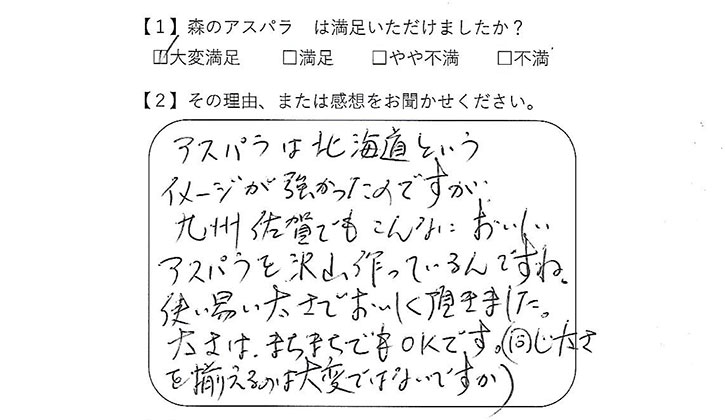 【1】森のアスパラ　は満足いただけましたか？
☑大変満足　□満足　□やや不満　□不満
【2】その理由、または感想をお聞かせください。
アスパラは北海道という
イメージが強かったのですが、
九州佐賀でもこんなにおいしい
アスパラを沢山作っているんですね。
使い易い太さでおいしく頂きました。
太さは、まちまちでもOKです。(同じ太さ
を揃えるのは大変ではないですか)